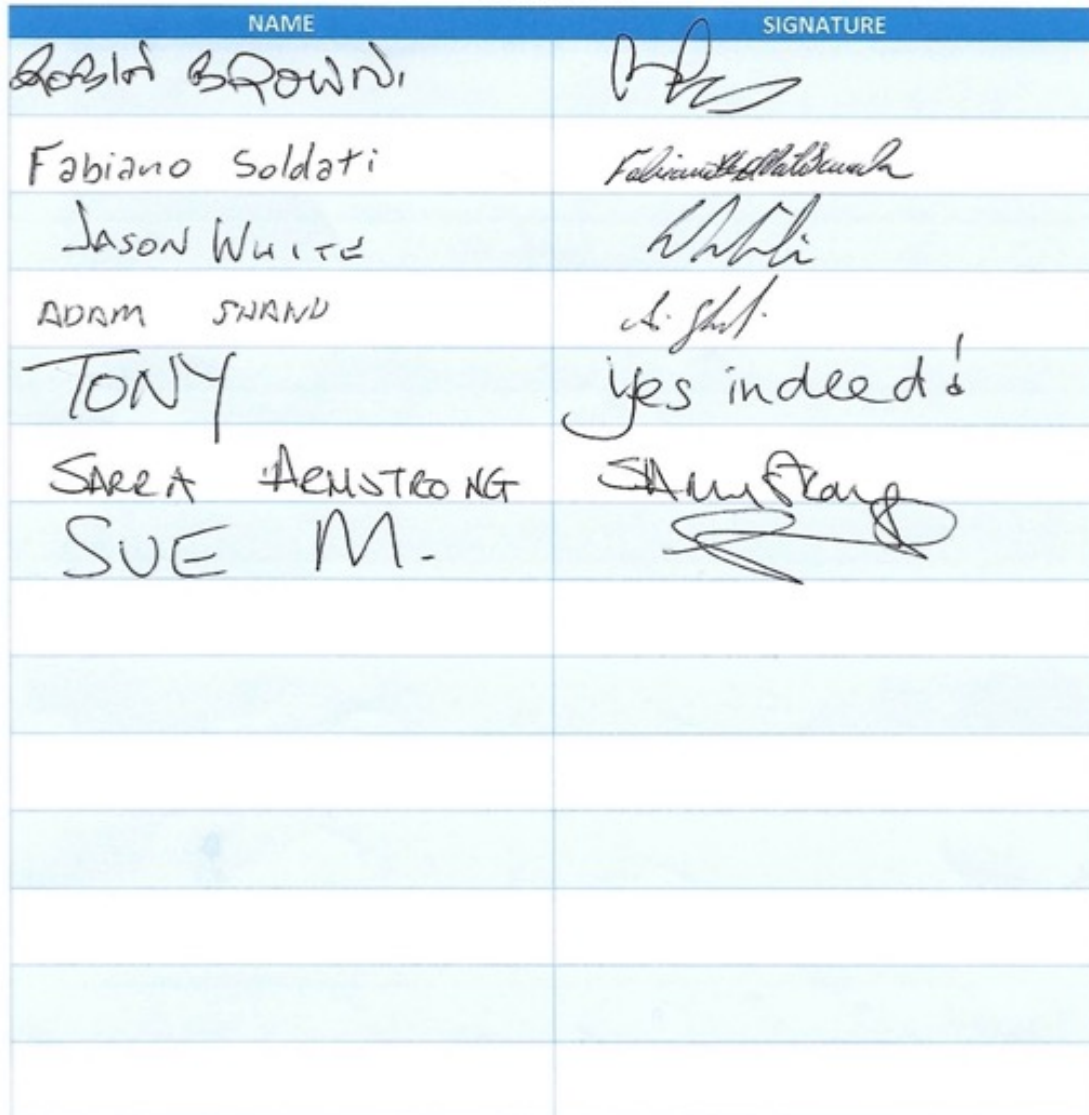 NAME SIGNATURE
ROBIN BROWN
Fabiano Soldati
JASON WHITE
ADAM SHAND A. Sh
TONY yes indeed!
SARRA ARMSTRONG SArmstrong
SUE M.